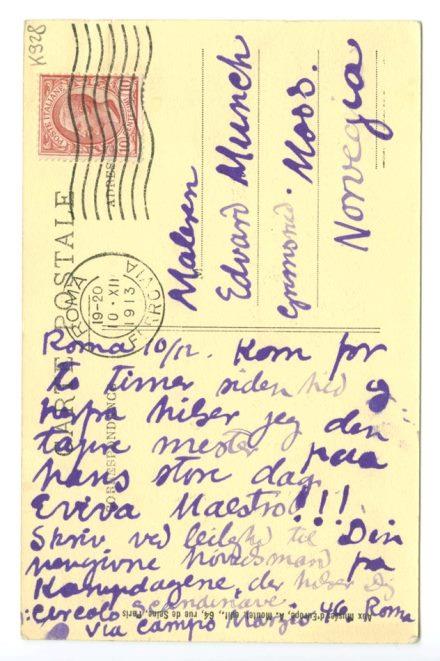 K328
POSTE ITALIANE
CARTE POSTALE
CORRESPONDENCE
ADRESSE
ROMA
19-20
10·XII
1913
FERROVIA
Maleren
Edvard Munch
Grimsrød. Moss.
Norvegia
Roma 10/12. Kom for
to timer siden hed og
herfra hilser jeg den
tapre mester paa
hans store dag.
Eviva Maestro!!!
Skriv ved leilighed til Din
hengivne høvedsmand fra
Kampdagene, der hilser Dig
Circolo Scandinave
Via Campo Marzio 46 Roma
Aux Musées d'Europe, A. Moutet, édit., 64, rue de Seine, Paris